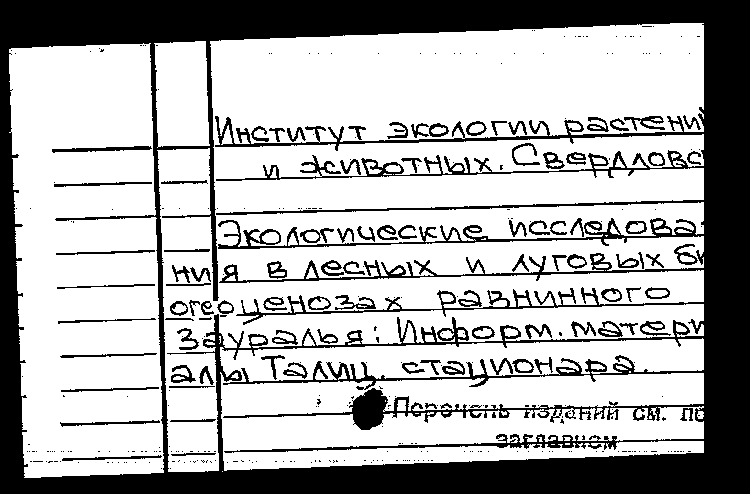 Институт экологии растений
и животных. Свердловс
Экологические исследова-
ния в лесных и луговых би
огеоценозах равнинного
Зауралья: Информ. матери
алы Талиц. стационара.
Перечень изданий см. по
заглавием